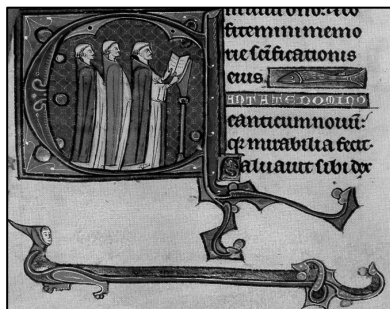 fitemini memo
rie sc̄ificationis
eius.
ANTATE DOMINO
canticum nouū:
q̄ mirabilia fecit.
Saluauit sibi dex